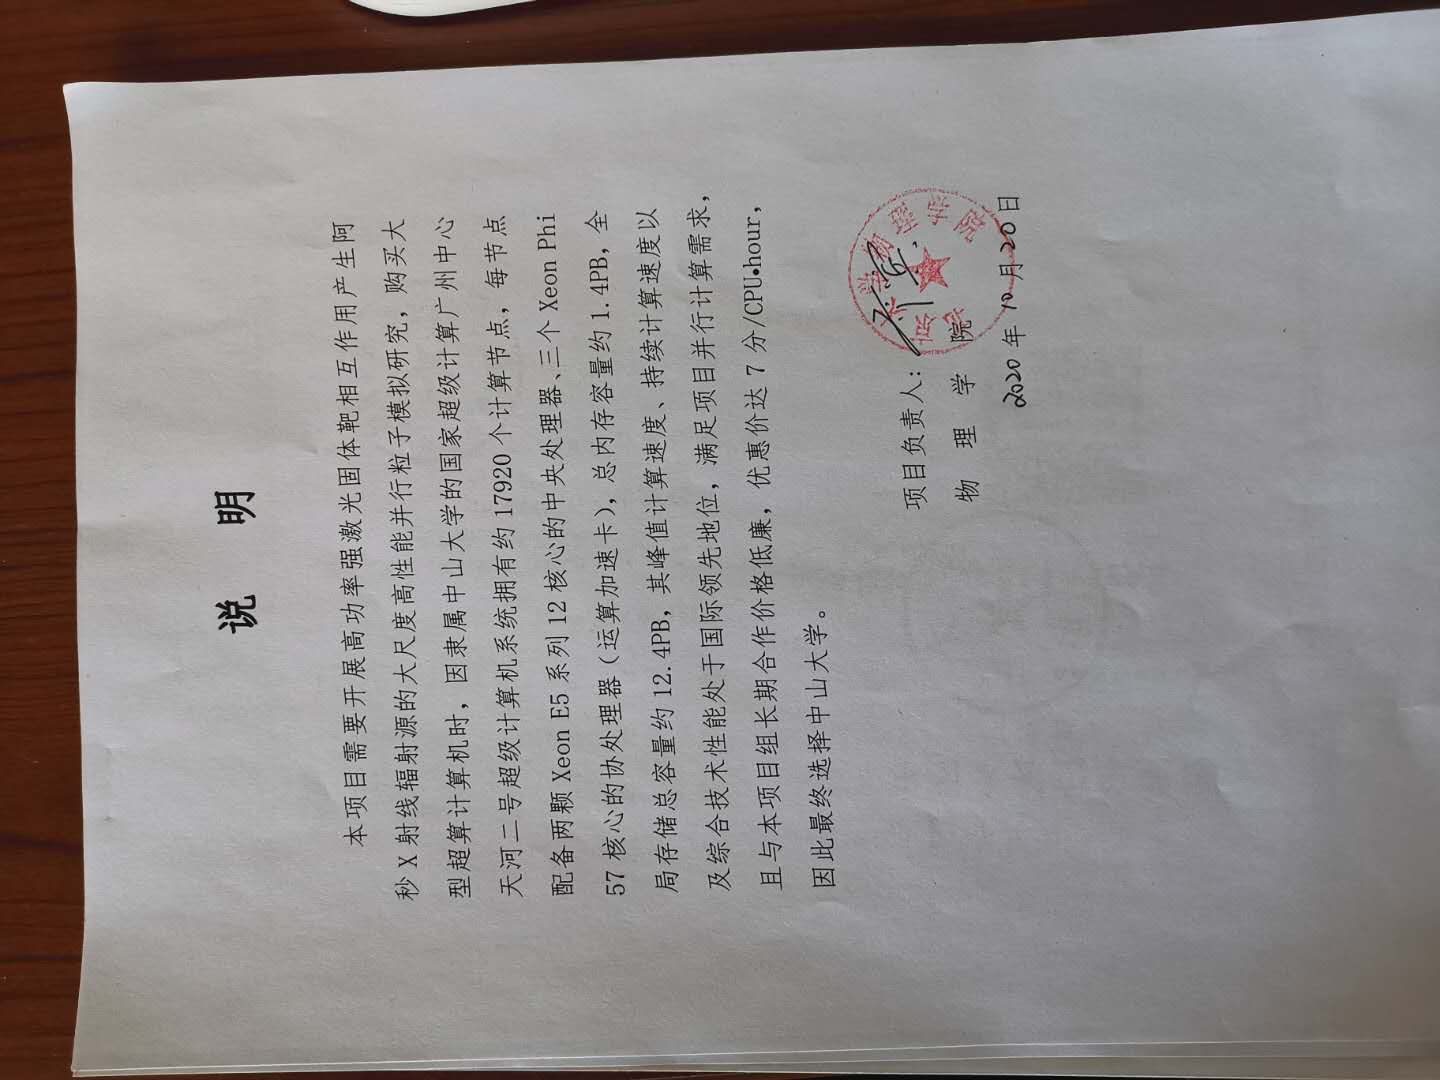 说 明
本项目需要开展高功率强激光固体靶相互作用产生阿
秒 X 射线辐射源的大尺度高性能并行粒子模拟研究，购买大
型超算计算机时，因隶属中山大学的国家超级计算广州中心
天河二号超级计算机系统拥有约 17920 个计算节点，每节点
配备两颗 Xeon E5 系列 12 核心的中央处理器、三个 Xeon Phi
57 核心的协处理器（运算加速卡），总内存容量约 1.4PB，全
局存储总容量约 12.4PB，其峰值计算速度、持续计算速度以
及综合技术性能处于国际领先地位，满足项目并行计算需求，
且与本项目组长期合作价格低廉，优惠价达 7 分/CPU•hour，
因此最终选择中山大学。
项目负责人：
物 理 学 院
2020 年 10 月 20 日